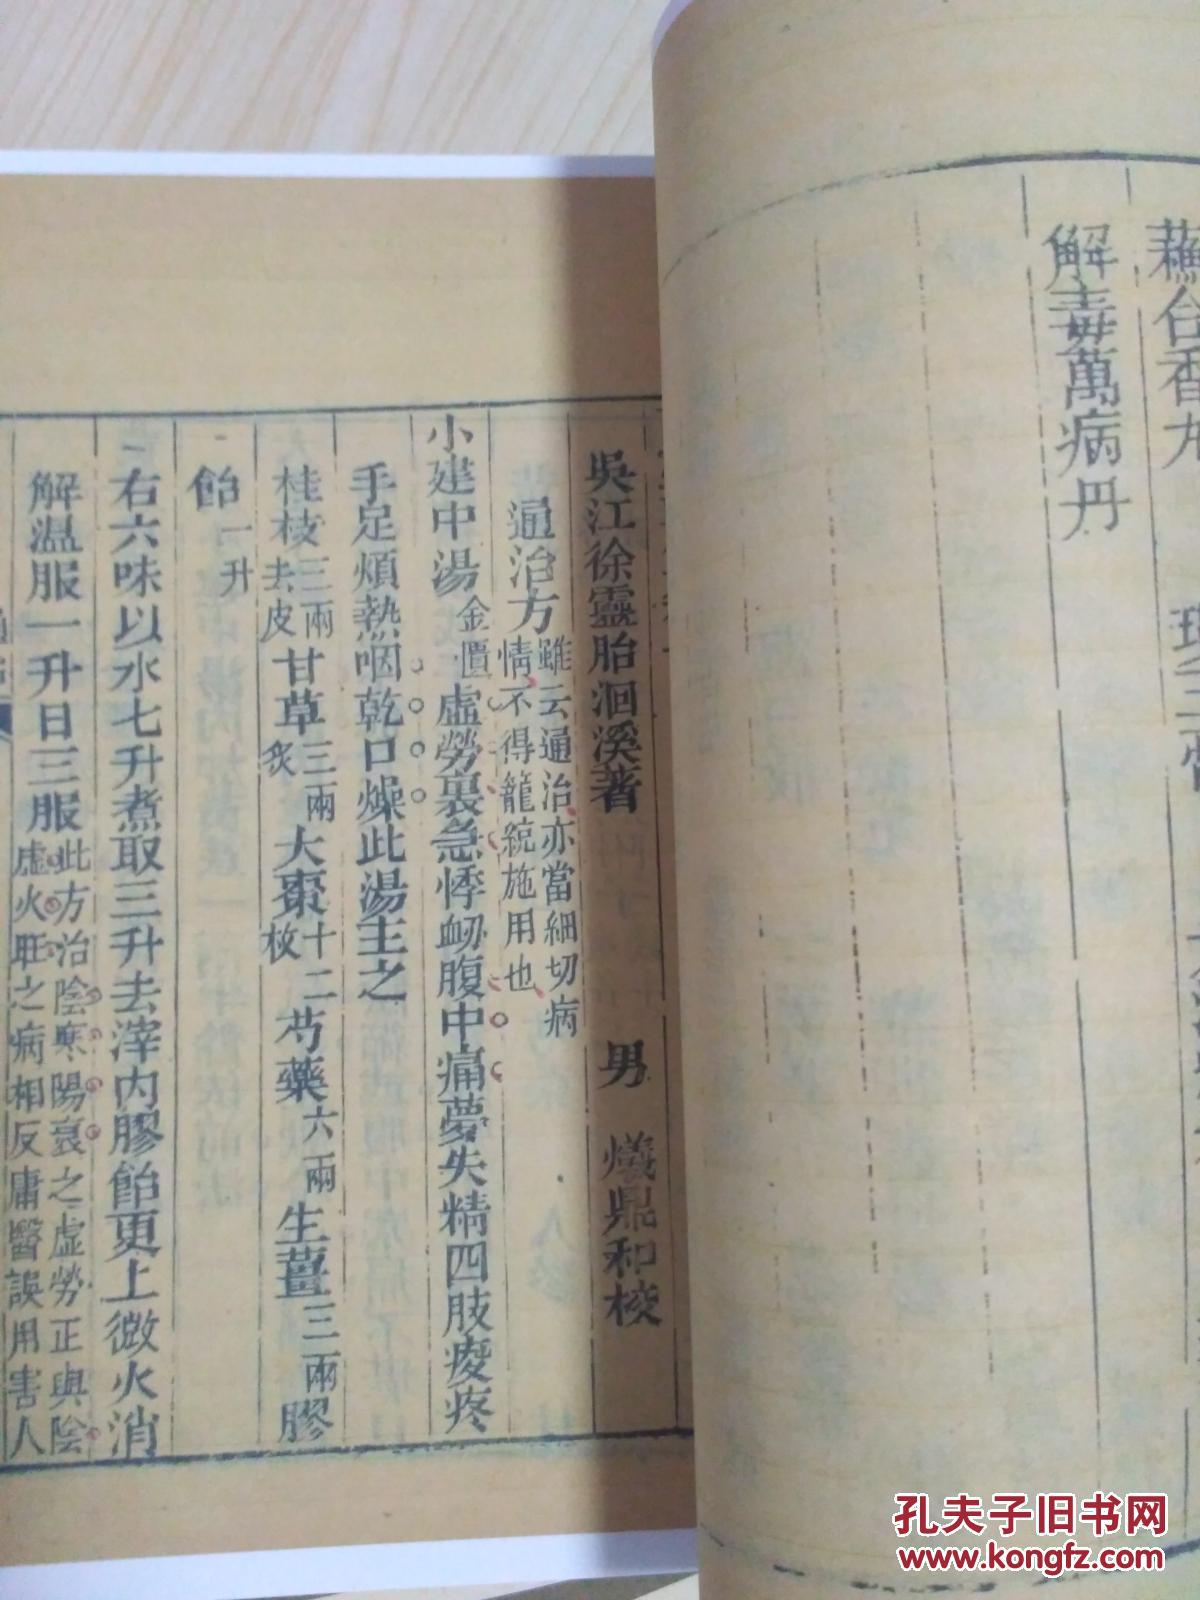 蘇合香丸
解毒萬病丹
吳江徐靈胎洄溪著 男 爔鼎和校
通治方雖云通治亦當細切病情不得籠統施用也
小建中湯金匱虛勞裏急悸衄腹中痛夢失精四肢痠疼
手足煩熱咽乾口燥此湯主之
桂枝三兩去皮甘草三兩炙大棗十二枚芍藥六兩生薑三兩膠
飴一升
右六味以水七升煮取三升去滓內膠飴更上微火消
解溫服一升日三服此方治陰寒陽衰之虛勞正與陰虛火旺之病相反庸醫誤用害人
孔夫子旧书网
www.kongfz.com